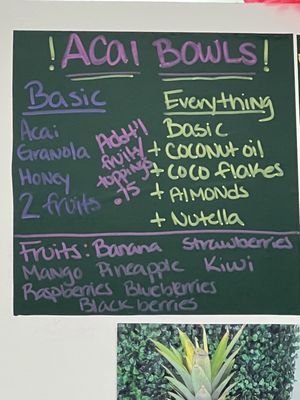 ! ACAI BOWLS !
Basic
Acai
Granola
Honey
2 fruits
Add'l
fruit/
topping
.75
Everything
Basic
+ COCONUT OIL
+ COCO flakes
+ AlMONDS
+ Nutella
Fruits: Banana Strawberries
Mango Pineapple Kiwi
Raspberries Blueberries
Blackberries